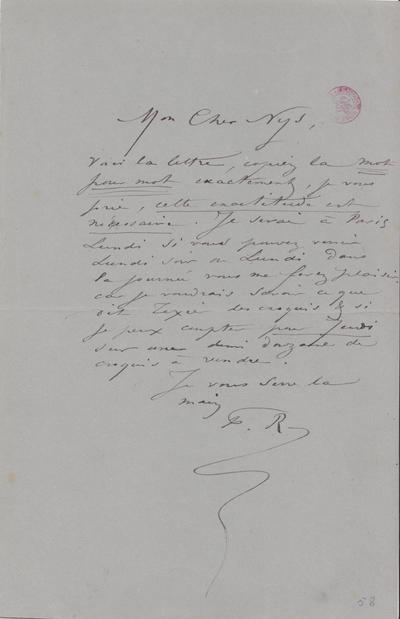 Mon Cher Nys,
Voici la lettre, copiez la mot
pour mot exactement, je vous
prie, cette exactitude est
nécessaire. Je serai à Paris
Lundi si vous pouvez venir
Lundi soir ou Lundi dans
la journée vous me ferez plaisir
car je voudrais savoir ce que
dit Texier des croquis & si
je peux compter pour Jeudi
sur une demi douzaine de
croquis à vendre.
Je vous serre la
main
F. R
58